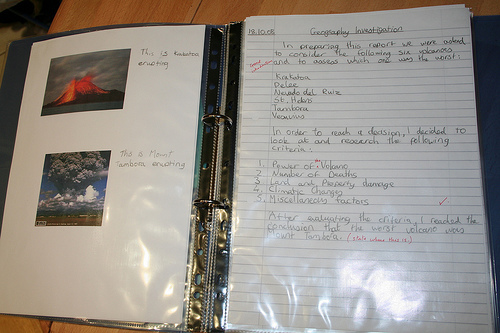 This is Krakatoa
erupting
This is Mount
Tambora erupting
18.10.08
Geography Investigation
In preparing this report we were asked
to consider the following six volcanoes
and to assess which one was the worst:
Krakatoa
Pelee
Nevado del Ruiz
St. Helens
Tambora
Vesuvius
In order to reach a decision, I decided to
look at and research the following
criteria:
1. Power of Volcano
2. Number of Deaths
3. Land and Property damage
4. Climatic Changes
5. Miscellaneous factors
After evaluating the criteria, I reached the
conclusion that the worst volcano was
Mount Tambora. (state where this is.)